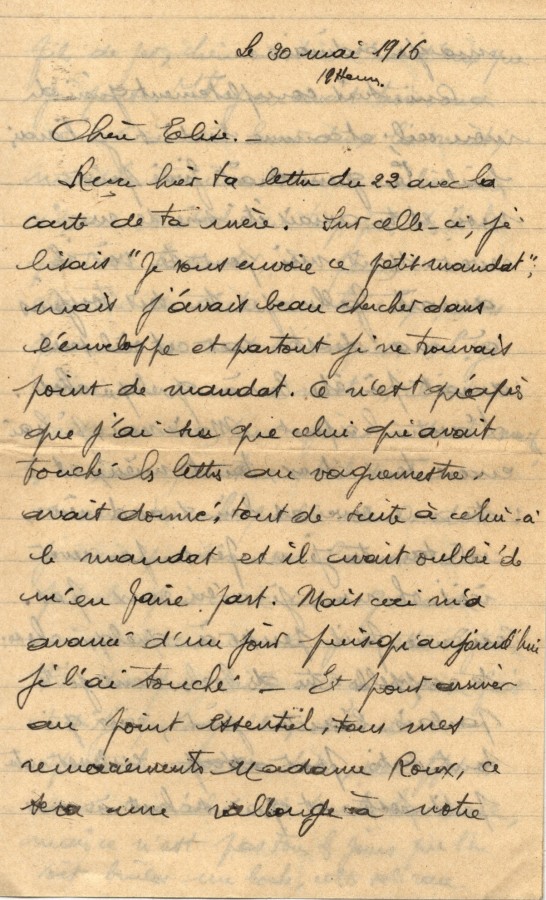 Le 30 mai 1916
19 heures.
Chère Elise. _
Reçu hier ta lettre du 22 avec la
carte de ta mère. Sur celle-ci, je
lisais "Je vous envoie ce petit mandat";
mais j'avais beau chercher dans
l'enveloppe et partout je ne trouvais
point de mandat. Ce n'est qu'après
que j'ai su que celui qui avait
touché les lettres au vaguemestre.
avait donné, tout de suite à celui-à
le mandat et il avait oublié de
m'en faire part. Mais ceci m'a
avancé d'un jour puisqu'aujourd'hui
je l'ai touché _ Et pour arriver
au point essentiel, tous mes
remerciements Madame Roux, ce
sera une rallonge à notre